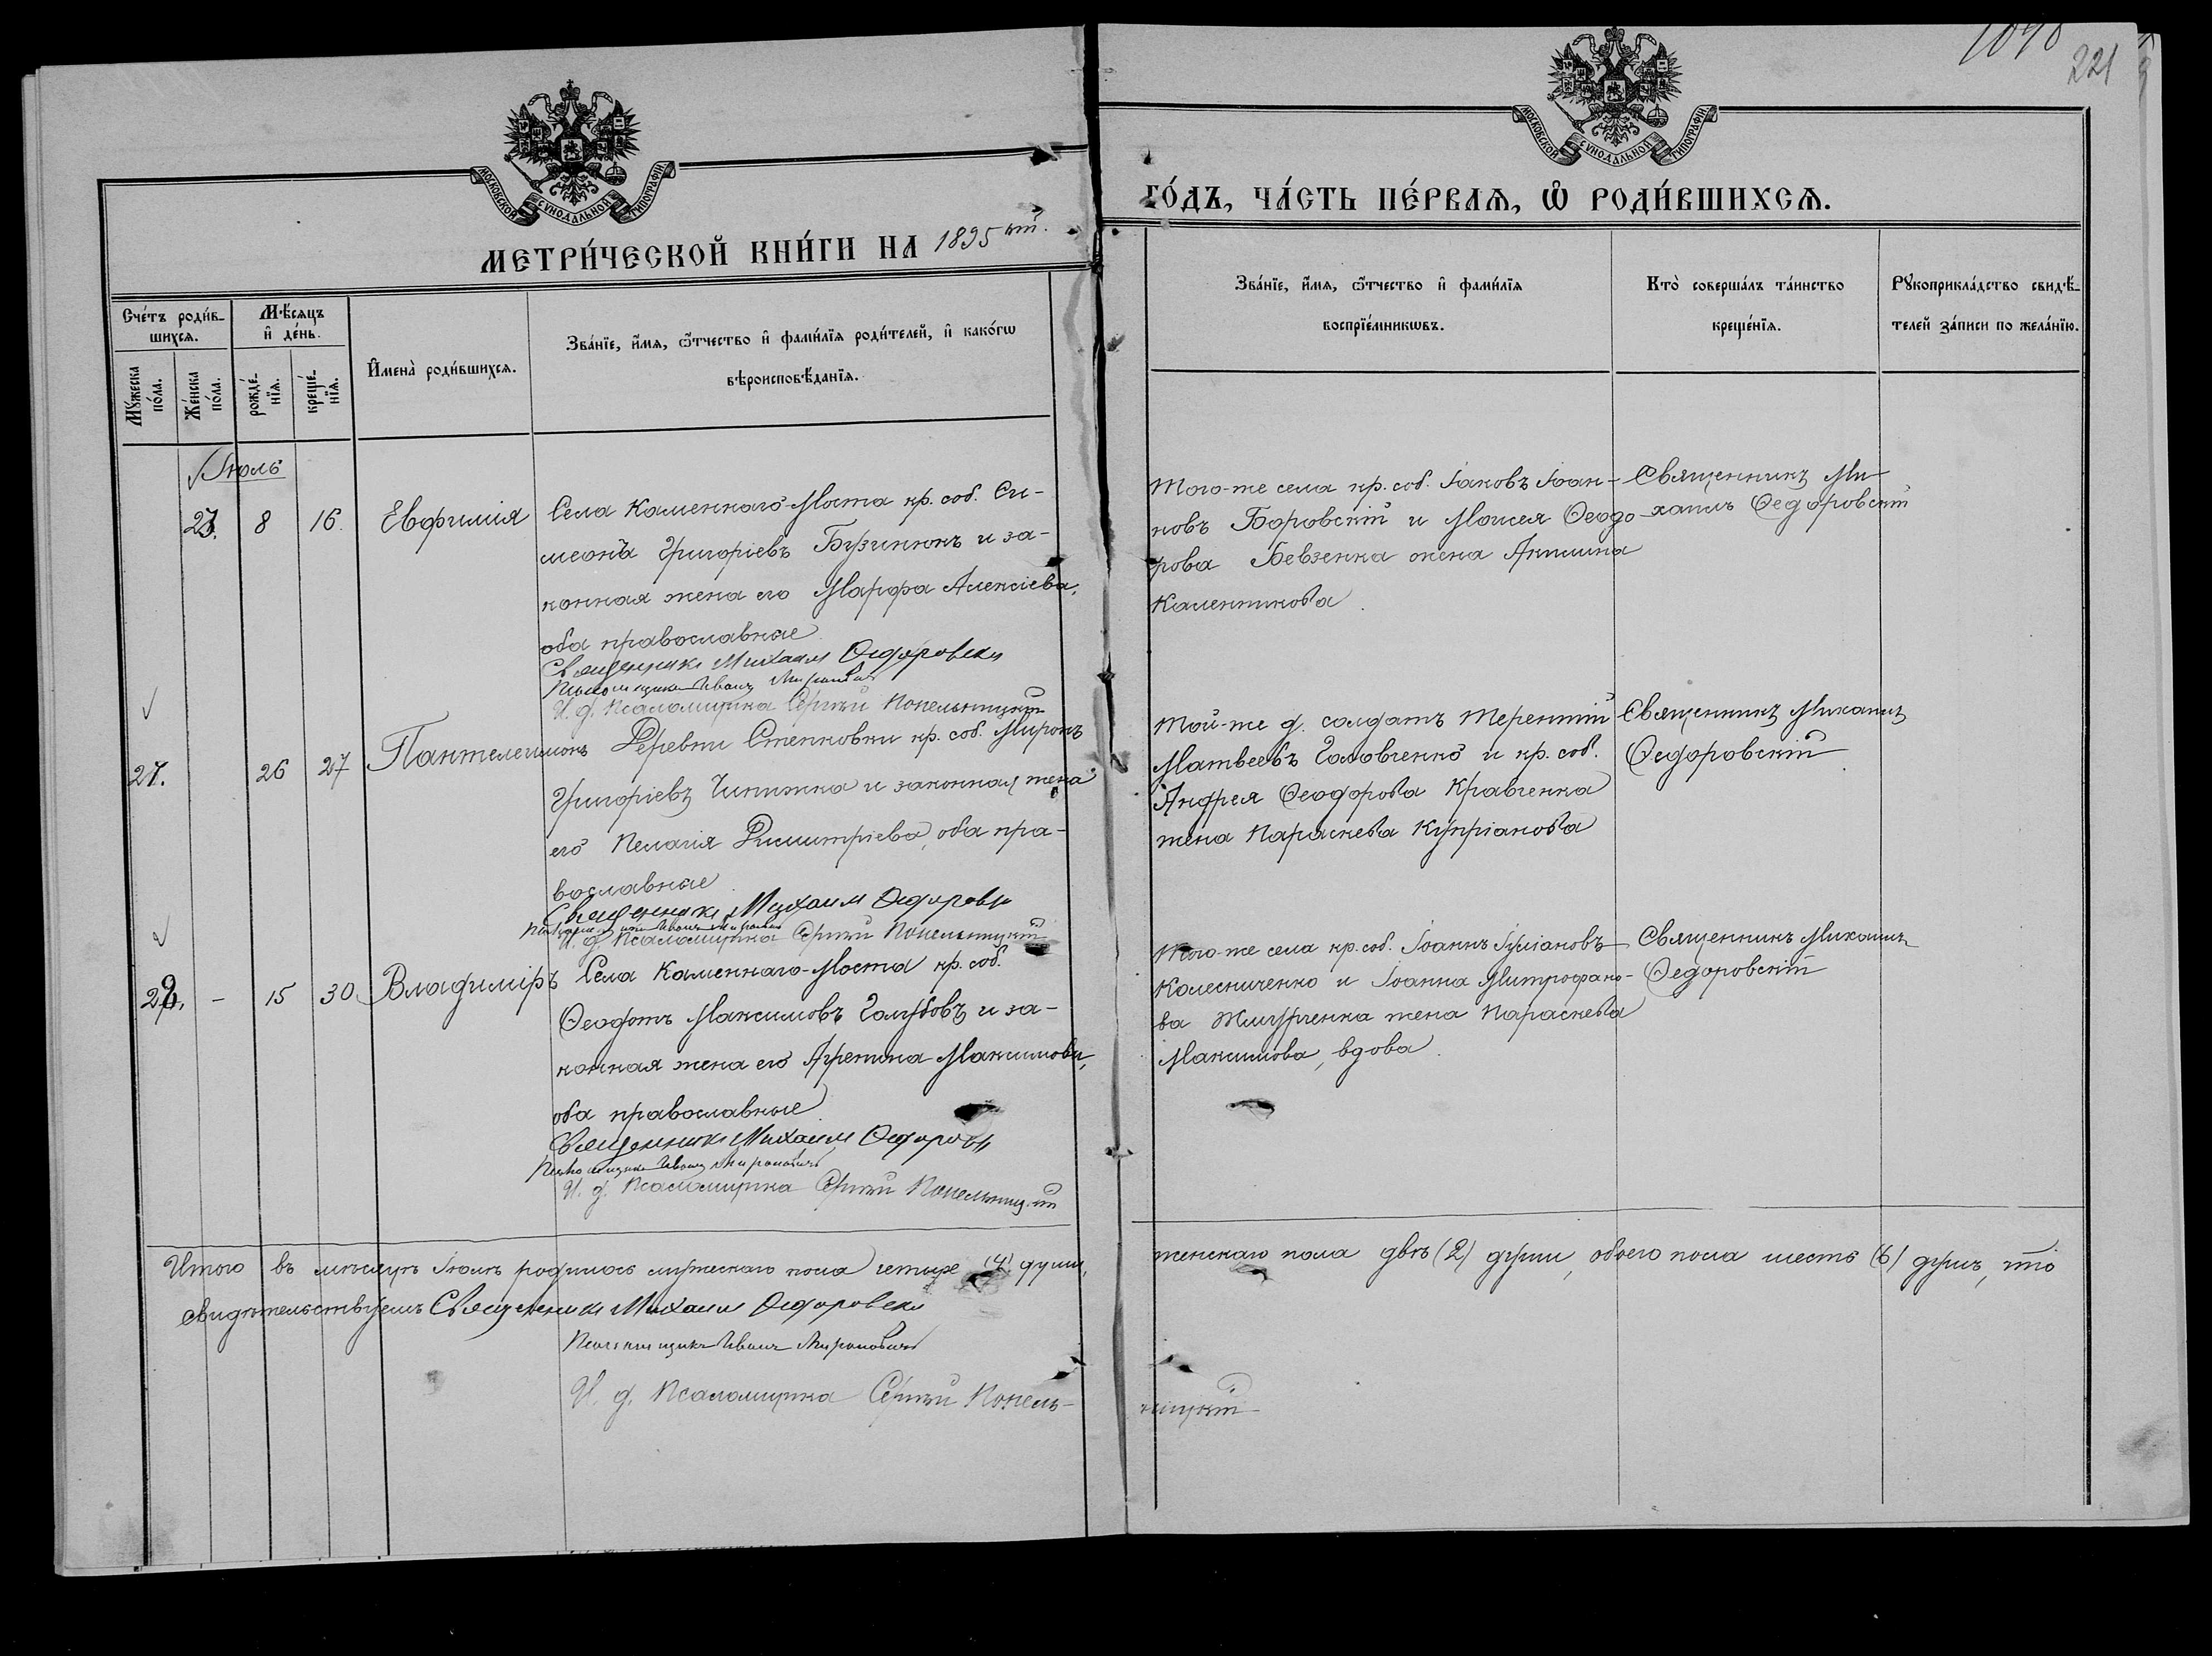 221
МОСКОВСКОЙ СѴНОДАЛЬНОЙ ТИПОГРАФІИ
МОСКОВСКОЙ СѴНОДАЛЬНОЙ ТИПОГРАФІИ
МЕТРИ́ЧЕСКОЙ КНИ́ГИ НА 1895 кій.
ГО́ДЪ, ЧА́СТЬ ПЕ́РВАѦ, Ѡ҆ РОДИ́ВШИХСѦ.
Счéтъ роди́в-
шихсѧ.
Мѣ́сѧцъ
и҆ де́нь.
И҆мена̀ роди́вшихсѧ.
Зва́нїе, и҆́мѧ, ѻ҆́тчество и҆ фами́лїѧ роди́телей, и҆ како́гѡ
вѣроисповѣ́данїѧ.
Мꙋ́жеска
по́ла.
Же́нска
по́ла.
рожде́-
нїѧ.
креще́-
нїѧ.
Зва́нїе, и҆́мѧ, ѻ҆́тчество и҆ фами́лїѧ
воспрїе́мникѡвъ.
Кто̀ соверша́лъ та́инство
креще́нїѧ.
Рꙋкоприкла́дство свидѣ́-
телей за́писи по жела́нїю.
Іюль
23. 8 16. Евфимія
Села Каменнаго-Моста кр. соб. Си-
меонъ Григоріевъ Бузинюкъ и за-
конная жена его Марфа Алексіева,
оба православные
Священникъ Михаилъ Ѳедоровскі
Псаломщикъ Иванъ Мироновичъ
И. д. Псаломщика Сергѣй Попельницкій
Того-же села кр. соб. Іаковъ Іоан-
новъ Боровскій и Моисея Ѳеодо-
рова Бевзенка жена Акилина
Каленикова.
Священникъ Ми-
хаилъ Ѳедоровскій
27. 26 27 Пантелеимонъ
Деревни Степковки кр. соб. Миронъ
Григоріевъ Чипижка и законная жена
его Пелагія Димитріева, оба пра-
вославные.
Священникъ Михаилъ Ѳедоровскі
Псаломщикъ Иванъ Мироновичъ
И. д. Псаломщика Сергѣй Попельницкій
Той-же д. солдатъ Терентій
Матвеевъ Головченко и кр. соб.
Андрея Ѳеодорова Кравченка
жена Параскева Купріанова
Священникъ Михаилъ
Ѳедоровскій.
28. - 15 30 Владиміръ
Села Каменнаго-Моста кр. соб.
Ѳеодотъ Максимовъ Голубовъ и за-
конная жена его Агрепина Максимова,
оба православные.
Священникъ Михаилъ Ѳедоровскі
Псаломщикъ Иванъ Мироновичъ
И. д. Псаломщика Сергѣй Попельницкій
Того-же села кр. соб. Іоаннъ Іуліановъ
Колесниченко и Іоанна Митрофано-
ва Жмурченка жена Параскева
Максимова, вдова.
Священникъ Михаилъ
Ѳедоровскій
Итого въ мѣсяцѣ Іюлѣ родилось мужескаго пола четыре (4) души,
женскаго пола двѣ (2) души, обоего пола шесть (6) душъ, что
свидѣтельствуемъ Священникъ Михаилъ Ѳедоровскі
Псаломщикъ Иванъ Мироновичъ
И. д. Псаломщика Сергѣй Попель-
ницкій